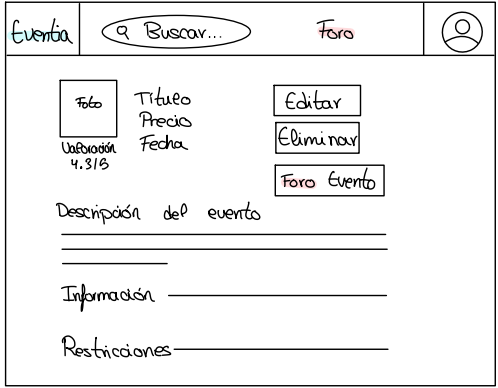 Eventia
Buscar...
Foro
Foto
Título
Precio
Fecha
Valoración
4.3/5
Editar
Eliminar
Foro Evento
Descripción del evento
Información
Restricciones